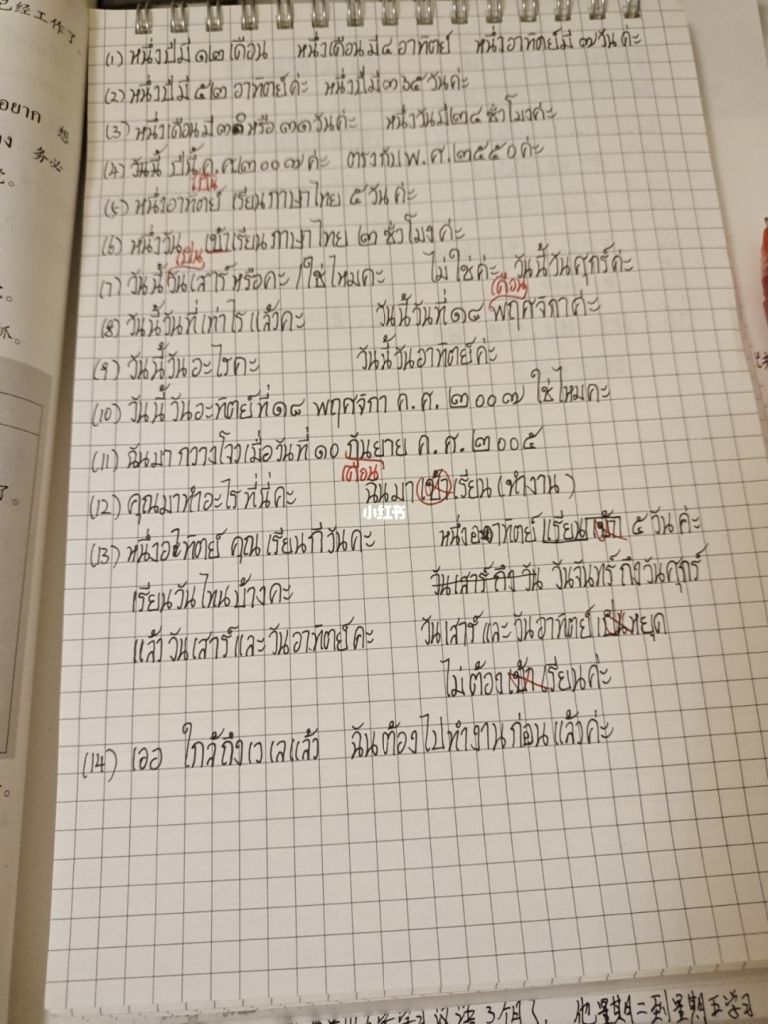 已经工作了.
อยาก 想
务必
(1) หนึ่งปีมี ๑๒ เดือน หนึ่งเดือนมี ๔ อาทิตย์ หนึ่งอาทิตย์มี ๗ วันค่ะ
(2) หนึ่งปีมี ๕๒ อาทิตย์ค่ะ หนึ่งปีมี ๓๖๕ วันค่ะ
(3) หนึ่งเดือนมี หรือ ๓๑ วันค่ะ หนึ่งวันมี ๒๔ ชั่วโมงค่ะ
(4) วันนี้ ปีนี้ ค.ศ. ๒๐๐๗ ค่ะ ตรงกับ พ.ศ. ๒๕๕๐ ค่ะ
เป็น
(5) หนึ่งอาทิตย์ เรียนภาษาไทย ๕ วันค่ะ
(6) หนึ่งวัน เข้าเรียนภาษาไทย ๒ ชั่วโมงค่ะ
เป็น
(7) วันนี้วันเสาร์หรือคะ / ใช่ไหมคะ ไม่ใช่ค่ะ วันนี้วันศุกร์ค่ะ
เดือน
(8) วันนี้วันที่เท่าไรแล้วคะ วันนี้วันที่ ๑๘ พฤศจิกาค่ะ
(9) วันนี้วันอะไรคะ วันนี้วันอาทิตย์ค่ะ
(10) วันนี้วันอะทิตย์ที่ ๑๘ พฤศจิกา ค.ศ. ๒๐๐๗ ใช่ไหมคะ
(11) ฉันมา กวางโจวเมื่อวันที่ ๑๐ กันยาย ค.ศ. ๒๐๐๕
เดือน
(12) คุณมาทำอะไรที่นี่คะ ฉันมาเข้าเรียน (ทำงาน)
小红书
(13) หนึ่งอาทิตย์ คุณเรียนกี่วันคะ หนึ่งอาทิตย์เรียน ๕ วันค่ะ
เรียนวันไหนบ้างคะ วันเสาร์ถึงวัน วันจันทร์ถึงวันศุกร์
แล้ววันเสาร์และวันอาทิตย์คะ วันเสาร์และวันอาทิตย์เป็นหยุด
ไม่ต้องเข้าเรียนค่ะ
(14) เออ ใกล้ถึงเวเลแล้ว ฉันต้องไปทำงานก่อนแล้วค่ะ
汉语3个月了, 他星期二到星期五学习